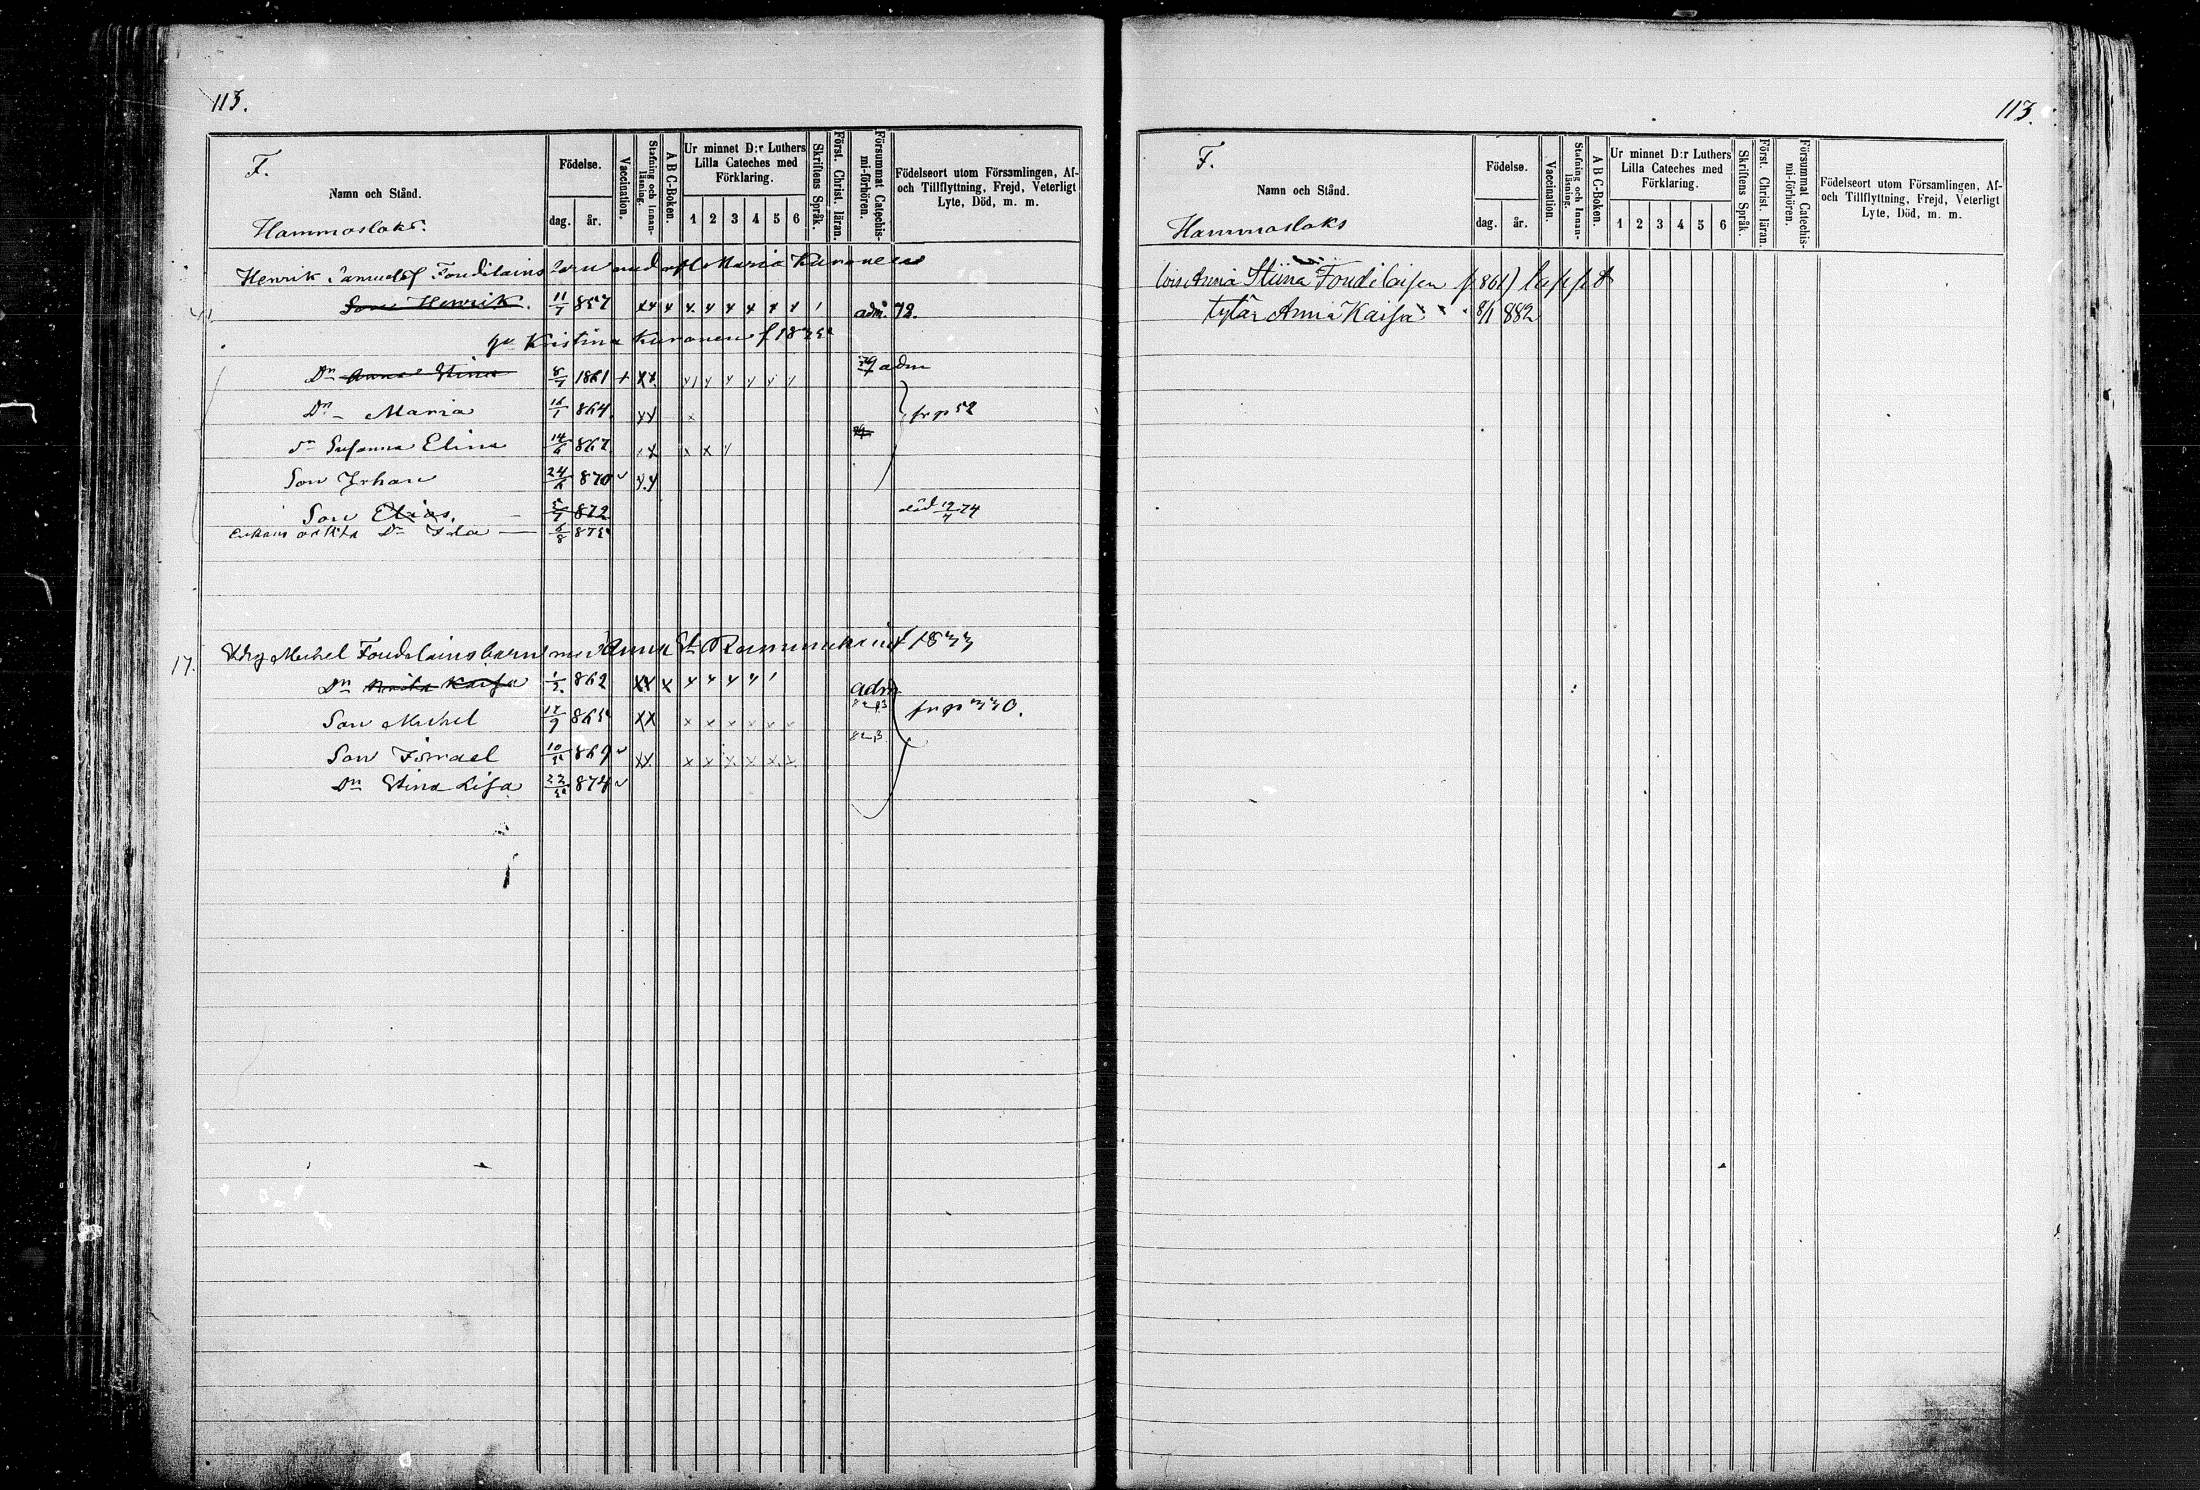 113.
F.
Namn och Stånd.
Hammaslaks.
Födelse.
dag. år.
Vaccination.
Stafning och Innan-läsning.
A B C-Boken.
Ur minnet D:r Luthers Lilla Cateches med Förklaring.
1 2 3 4 5 6
Skriftens Språk.
Först. Christ. läran.
Försummat Catechis-mi-förhören.
Födelseort utom Församlingen, Af- och Tillflyttning, Frejd, Veterligt Lyte, Död, m. m.
Henrik Samuelsf Foudilains barn med afl Maria Kuronen
Son Henrik. 11/7 857 xx x x x x x x x adm 72.
Kristina Kuronen f 1835
Dn Anna Stina 8/7 1861 + xx 79 adm
Dn - Maria 16/1 864 xx x fr p 52
Dn Susanna Elina 867 x x x
Son Johan 24/6 870 xx
Son Elias. 5/7 872 död 12/4 74
Dn Ida 6/8 875
17. Michel Foudilains barn med Anna St. f 1833
Dn Kaisa 1/2 862 xx x adm
Son Michel 9 865 xx x x x x x x fr p 330.
Son Ismael 10/12 869 xx x x x x x x
Dn Stina Lisa 874
113.
F.
Namn och Stånd.
Hammaslaks
Födelse.
dag. år.
Vaccination.
Stafning och Innan-läsning.
A B C-Boken.
Ur minnet D:r Luthers Lilla Cateches med Förklaring.
1 2 3 4 5 6
Skriftens Språk.
Först. Christ. läran.
Försummat Catechis-mi-förhören.
Födelseort utom Församlingen, Af- och Tillflyttning, Frejd, Veterligt Lyte, Död, m. m.
Anna Stiina Foudilaisen f 861) lapset
tytär Anna Kaisa 8/1 882